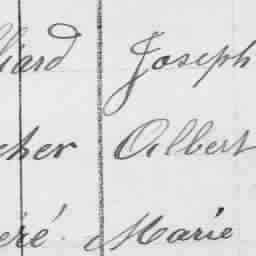 liard Joseph
cher Albert
eré Marie